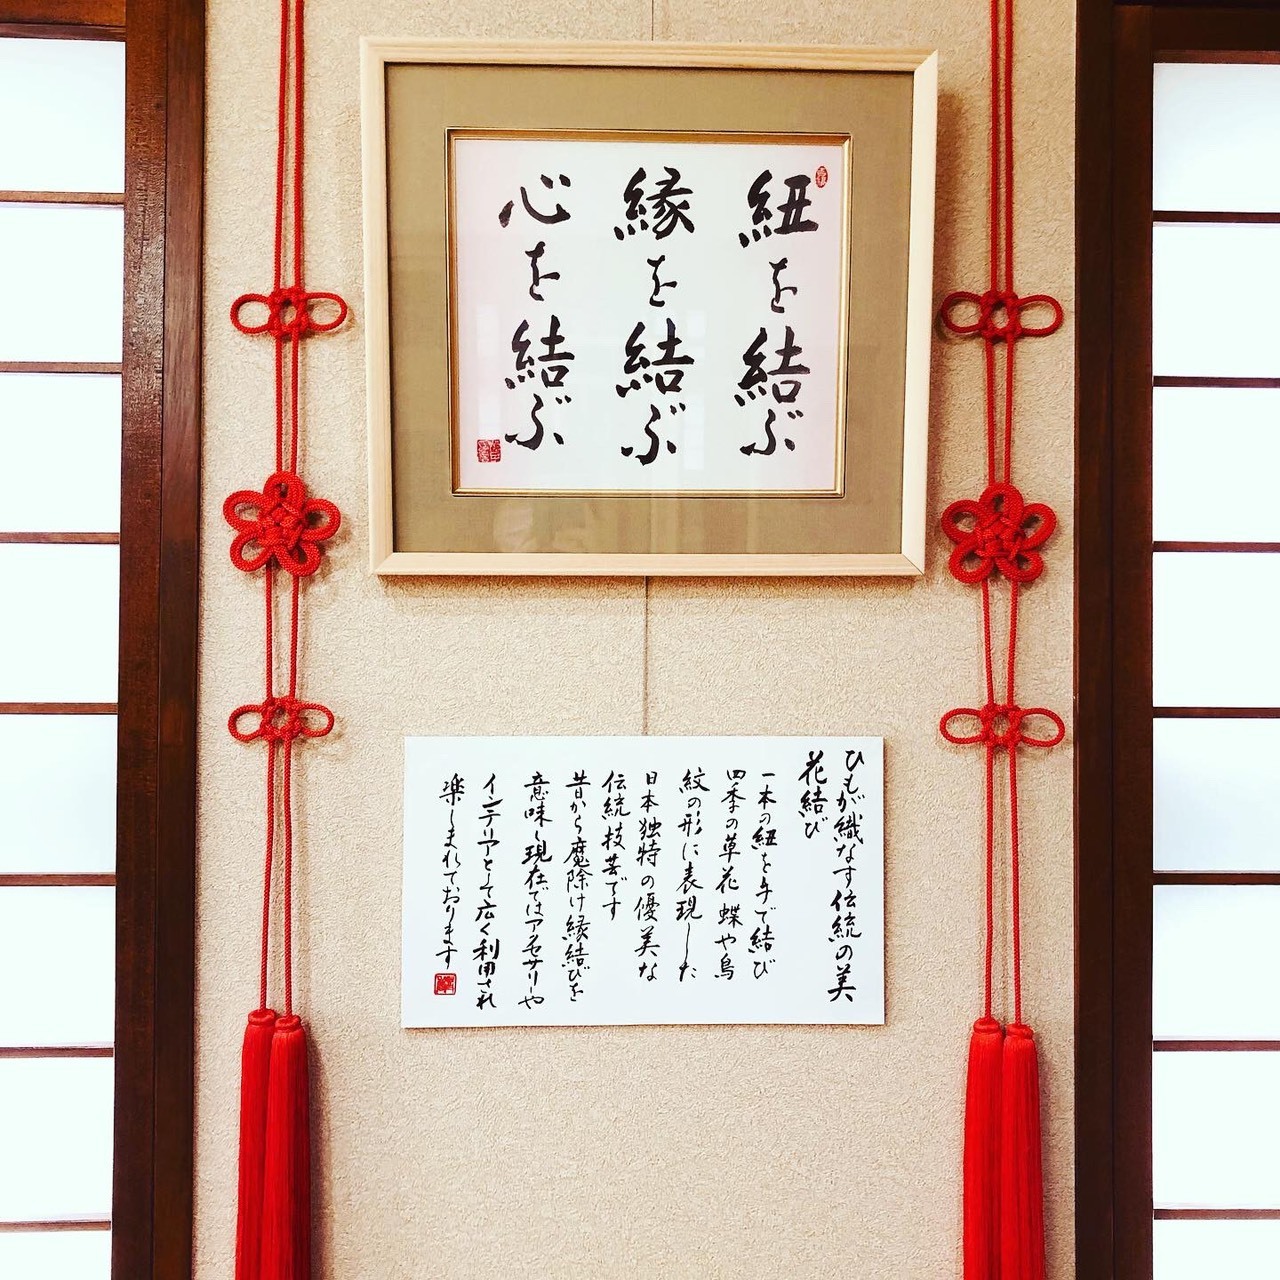 紐を結ぶ
縁を結ぶ
心を結ぶ
ひもが織なす伝統の美
花結び
一本の紐を手で結び
四季の草花 蝶や鳥
紋の形に表現した
日本独特の優美な
伝統技芸です
昔から魔除け 縁結びを
意味し現在ではアクセサリーや
インテリアとして広く利用され
楽しまれております